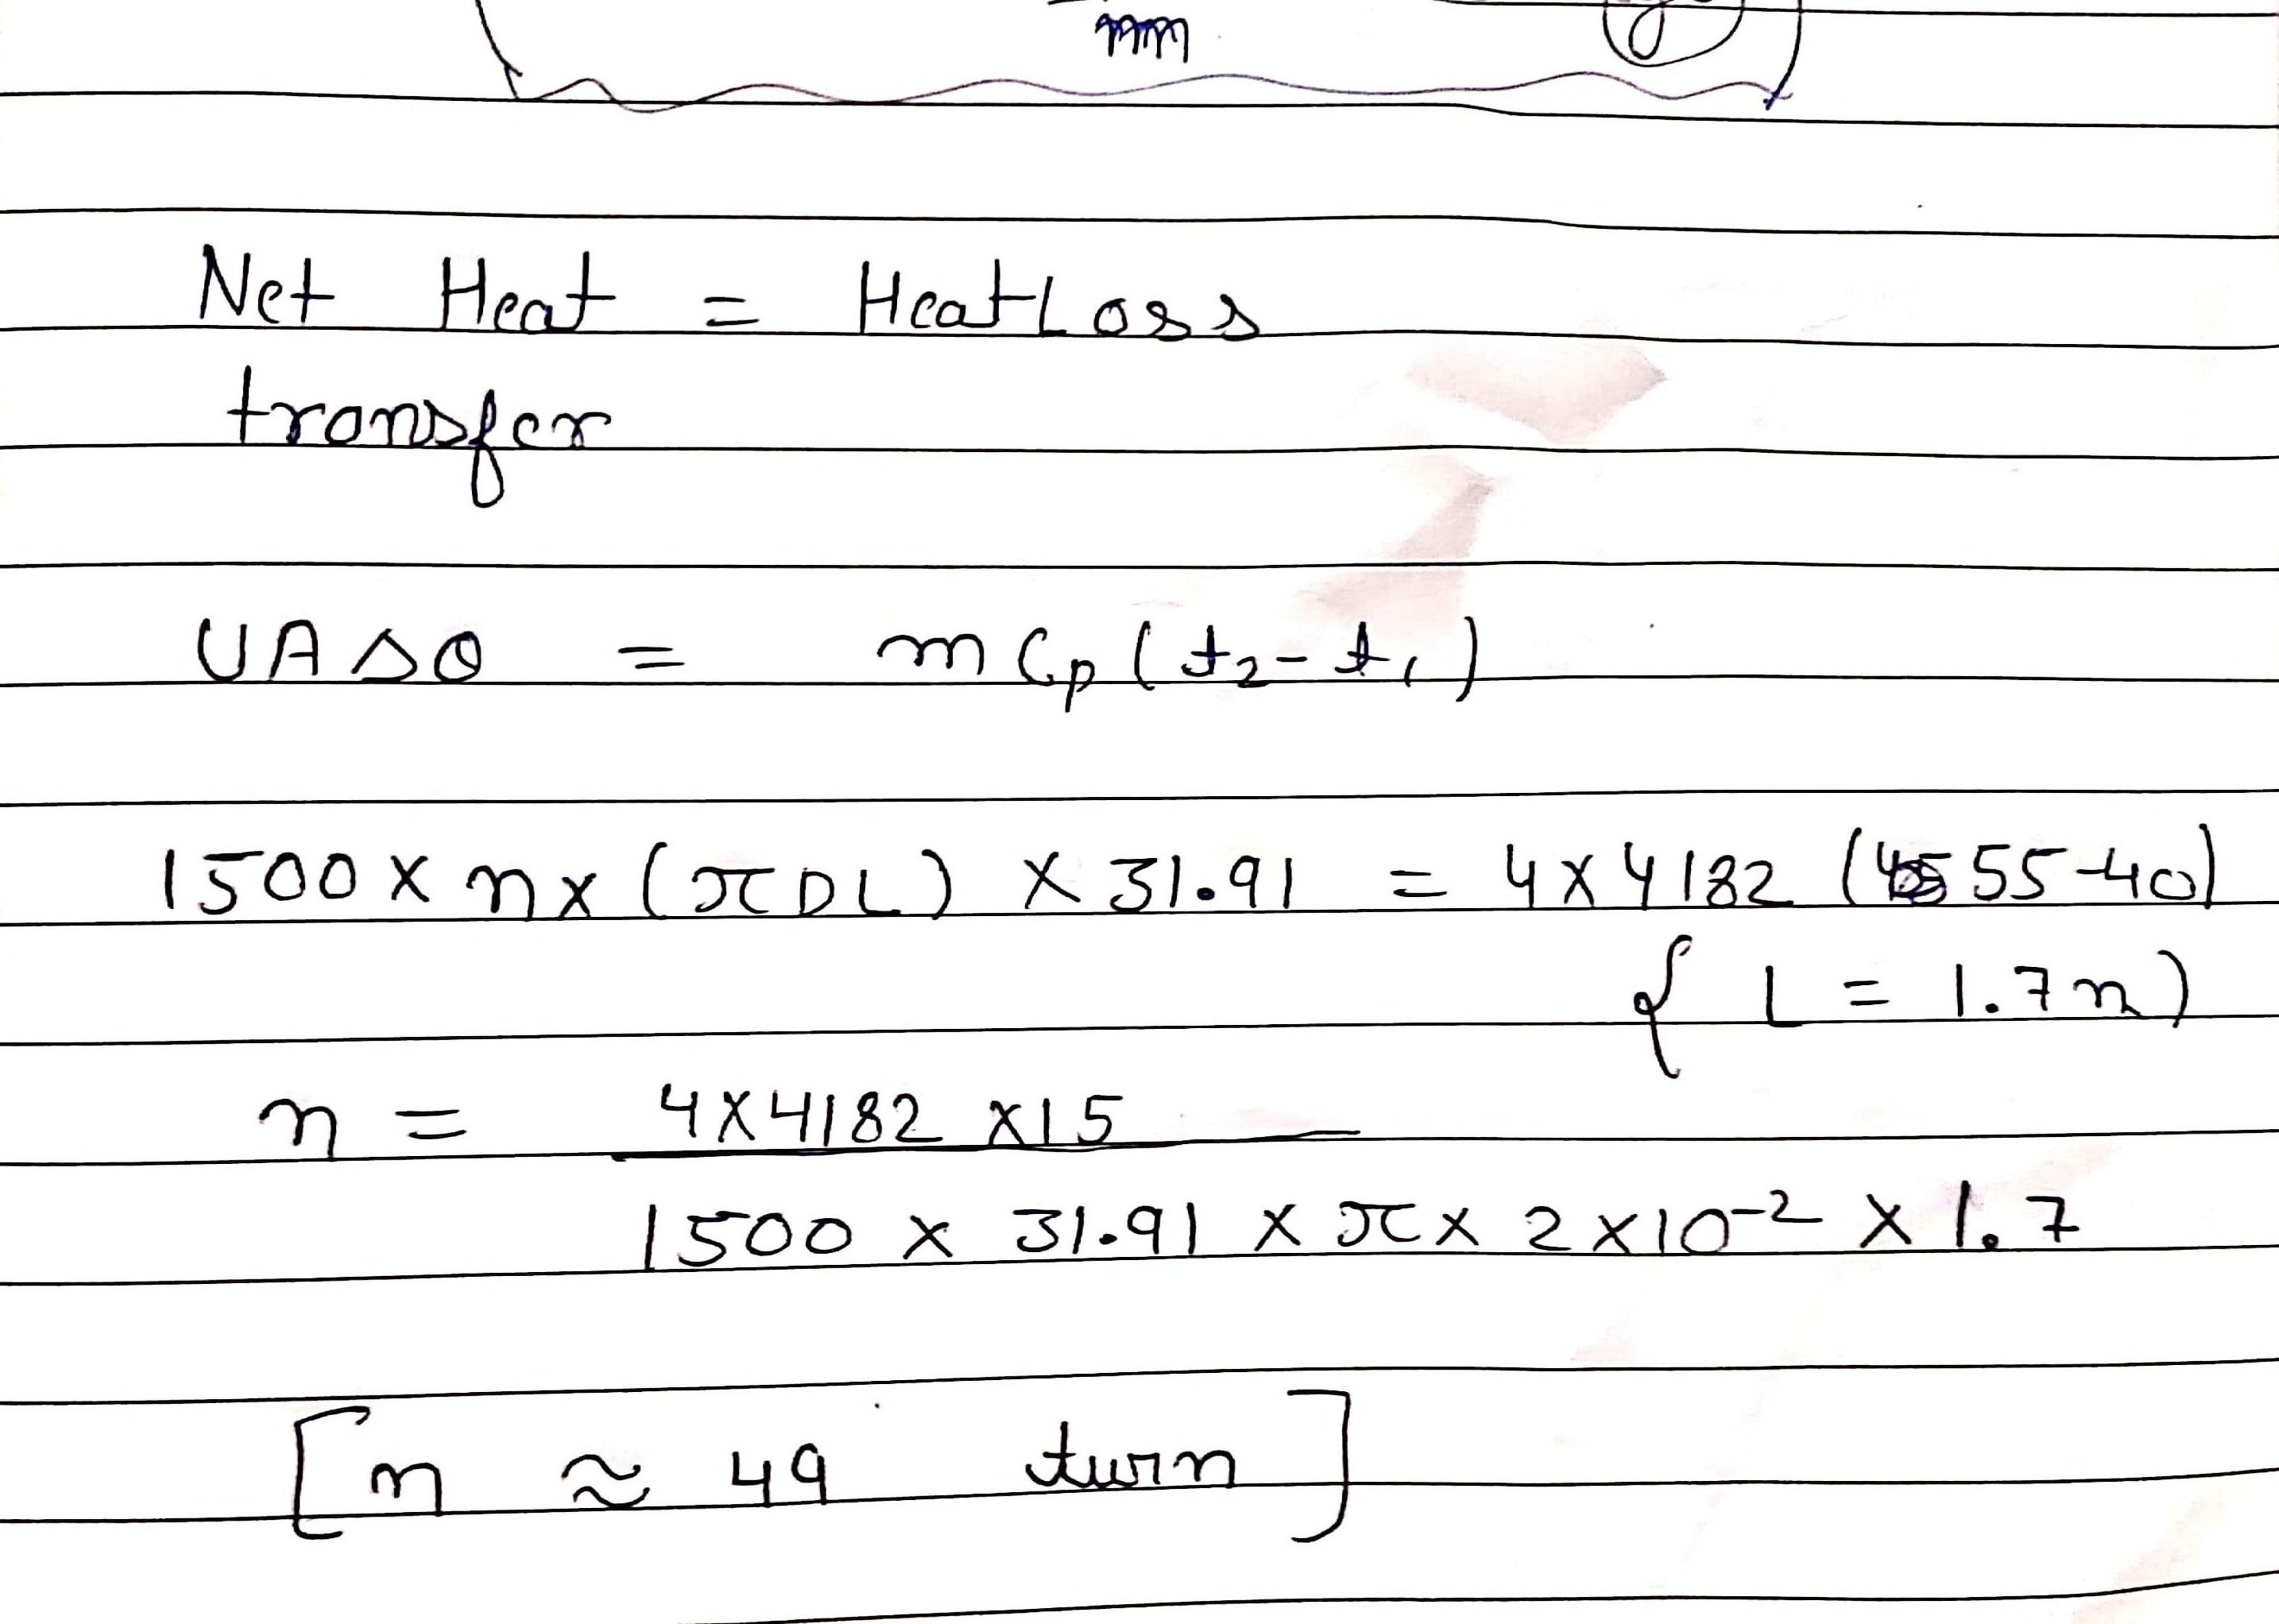 mm
Net Heat = Heat Loss
transfer
UAΔθ = mCp (t₂ - t₁)
1500 × n × (πDL) × 31.91 = 4 × 4182 (55-40)
{ L = 1.7m)
n = 4×4182 ×15
1500 × 31.91 × π × 2×10⁻² × 1.7
[n ≈ 49 turn]